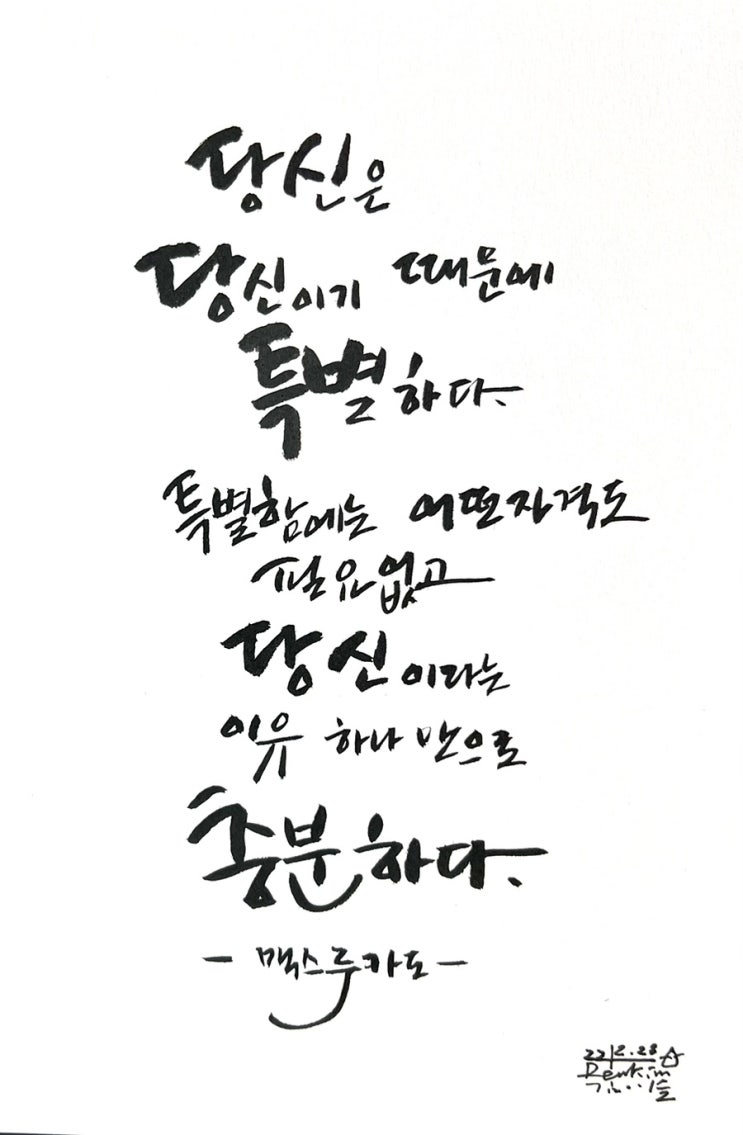 당신은
당신이기 때문에
특별하다.
특별함에는 어떤자격도
필요없고
당신이라는
이유 하나 만으로
충분하다.
- 맥스루카도 -